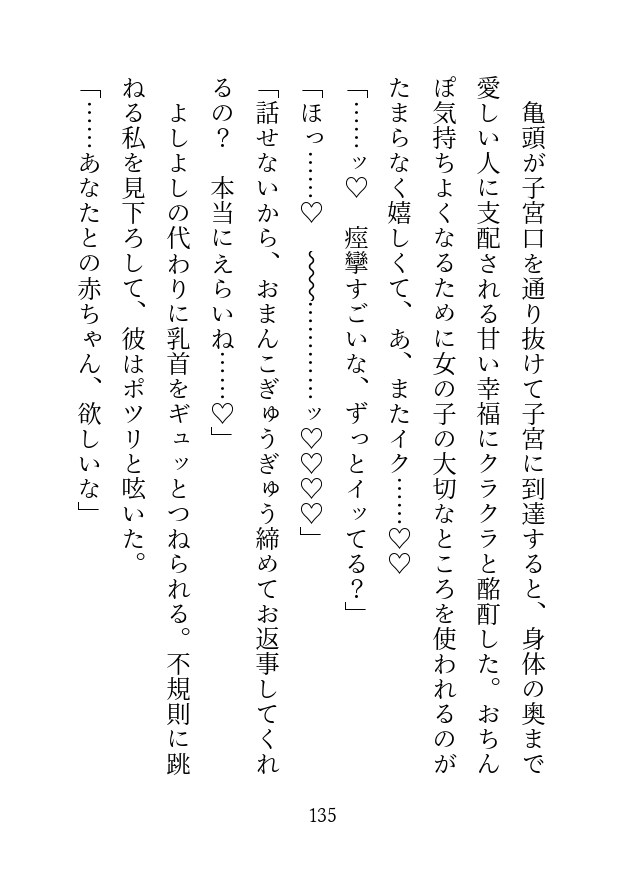 亀頭が子宮口を通り抜けて子宮に到達すると、身体の奥まで
愛しい人に支配される甘い幸福にクラクラと酩酊した。おちん
ぽ気持ちよくなるために女の子の大切なところを使われるのが
たまらなく嬉しくて、あ、またイク……♡♡
「……ッ♡　痙攣すごいな、ずっとイッてる？」
「ほっ……♡　〰〰…………ッ♡♡♡♡」
「話せないから、おまんこぎゅうぎゅう締めてお返事してくれ
るの？　本当にえらいね……♡」
よしよしの代わりに乳首をギュッとつねられる。不規則に跳
ねる私を見下ろして、彼はポツリと呟いた。
「……あなたとの赤ちゃん、欲しいな」
135